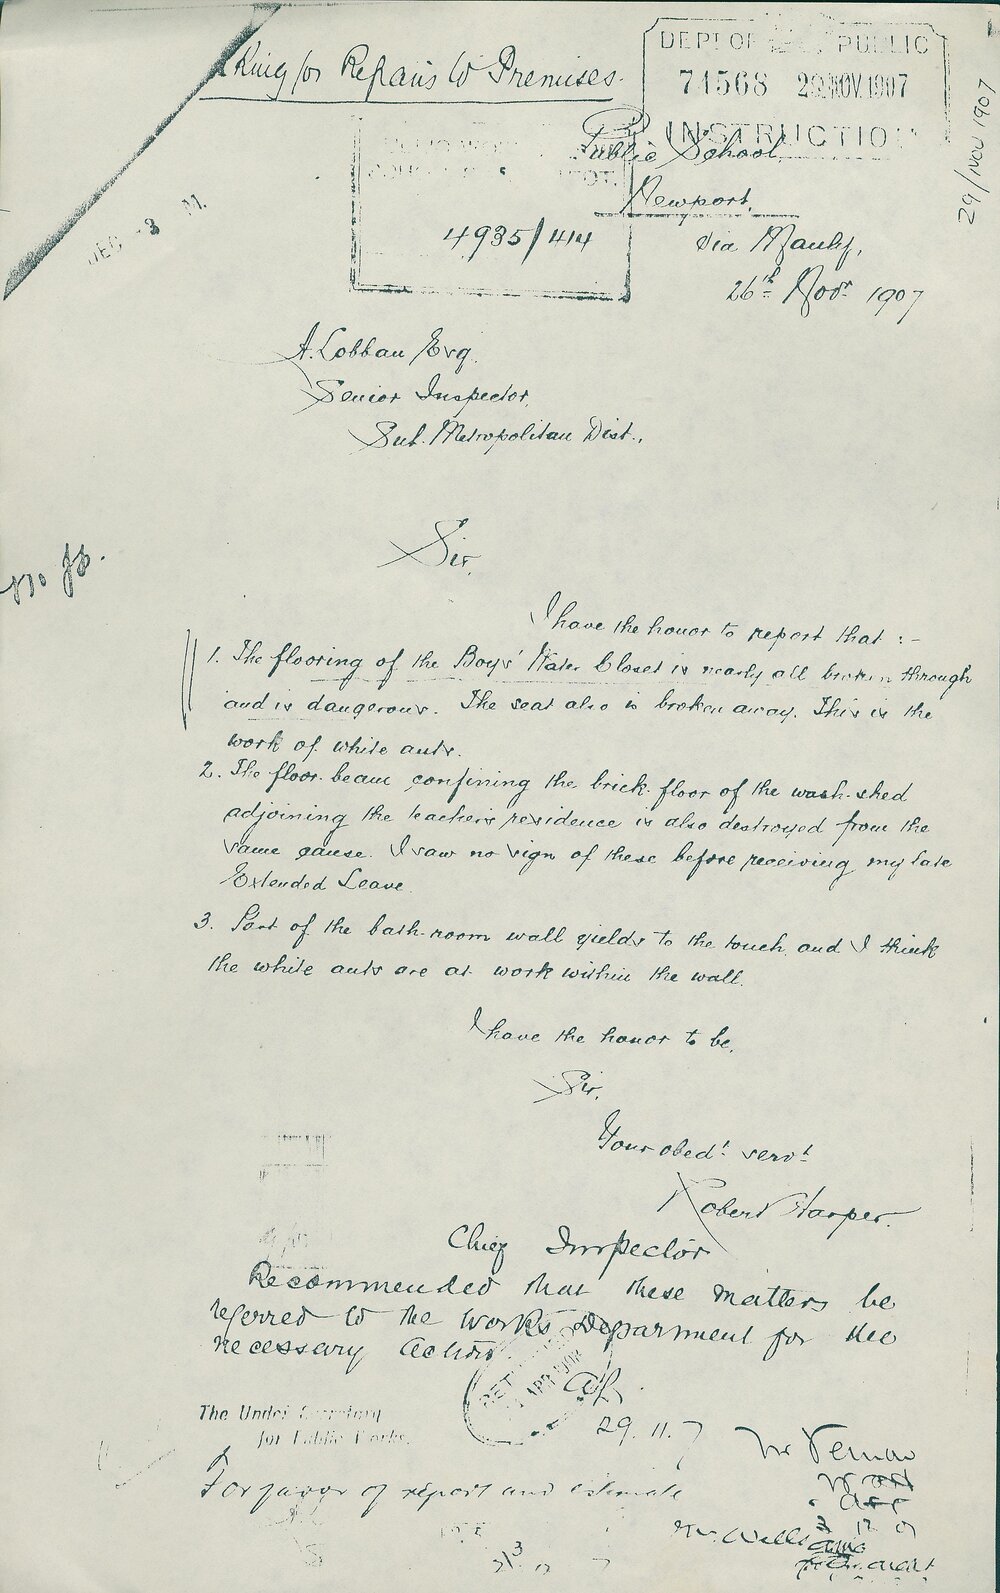 Asking for Repairs to Premises.
DEPT OF PUBLIC
74568 29 NOV. 1907
INSTRUCTION
29/NOV 1907
DEC -3
4935/414
Public School
Newport,
Via Manly,
26th Novr 1907
A. Lobban Esq.
Senior Inspector,
Sub. Metropolitan Dist.,
Sir,
I have the honor to report that :-
1. The flooring of the Boys' Water Closet is nearly all broken through
and is dangerous. The seat also is broken away. This is the
work of white ants.
2. The floor beam confining the brick floor of the wash-shed
adjoining the teacher's residence is also destroyed from the
same cause. I saw no sign of these before receiving my late
Extended Leave.
3. Part of the bath-room wall yields to the touch, and I think
the white ants are at work within the wall.
I have the honor to be,
Sir,
Your obedt servt
Robert Harper.
Chief Inspector
Recommended that these matters be
referred to the Works Department for the
necessary action.
AL
29.11.7
The Under Secretary
for Public Works.
For favor of report and estimate
Mr Vernon
3 12 07
Mr. Williams